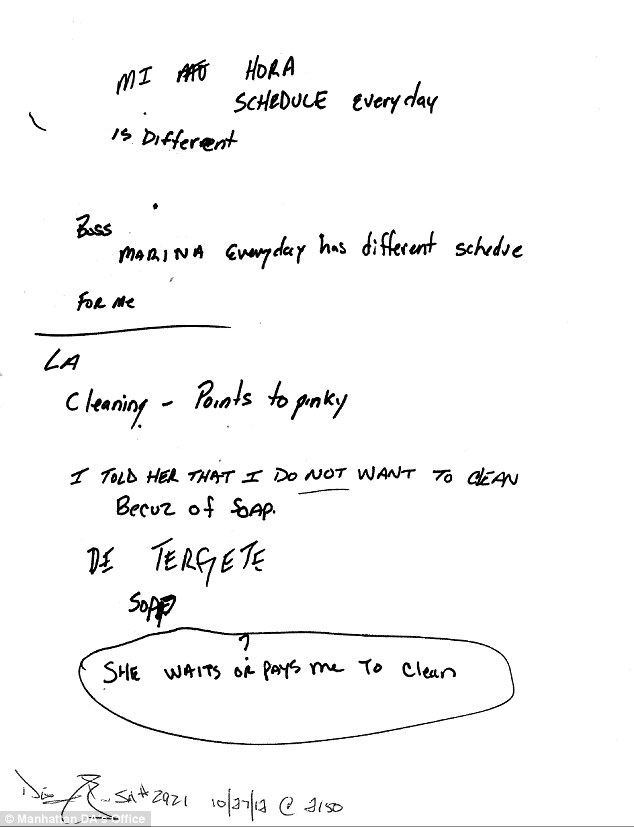 MI HORA
SCHEDULE everyday
is Different
Boss
MARINA Everyday has different schedue
FOR Me
LA
Cleaning - Points to pinky
I TOLD HER THAT I DO NOT WANT TO CLEAN
Becuz of SOAP.
DE TERGETE
SOAP
?
SHE WAITS OR PAYS me TO Clean
SH# 2921 10/27/12 @ 2150
© Manhattan DA's Office